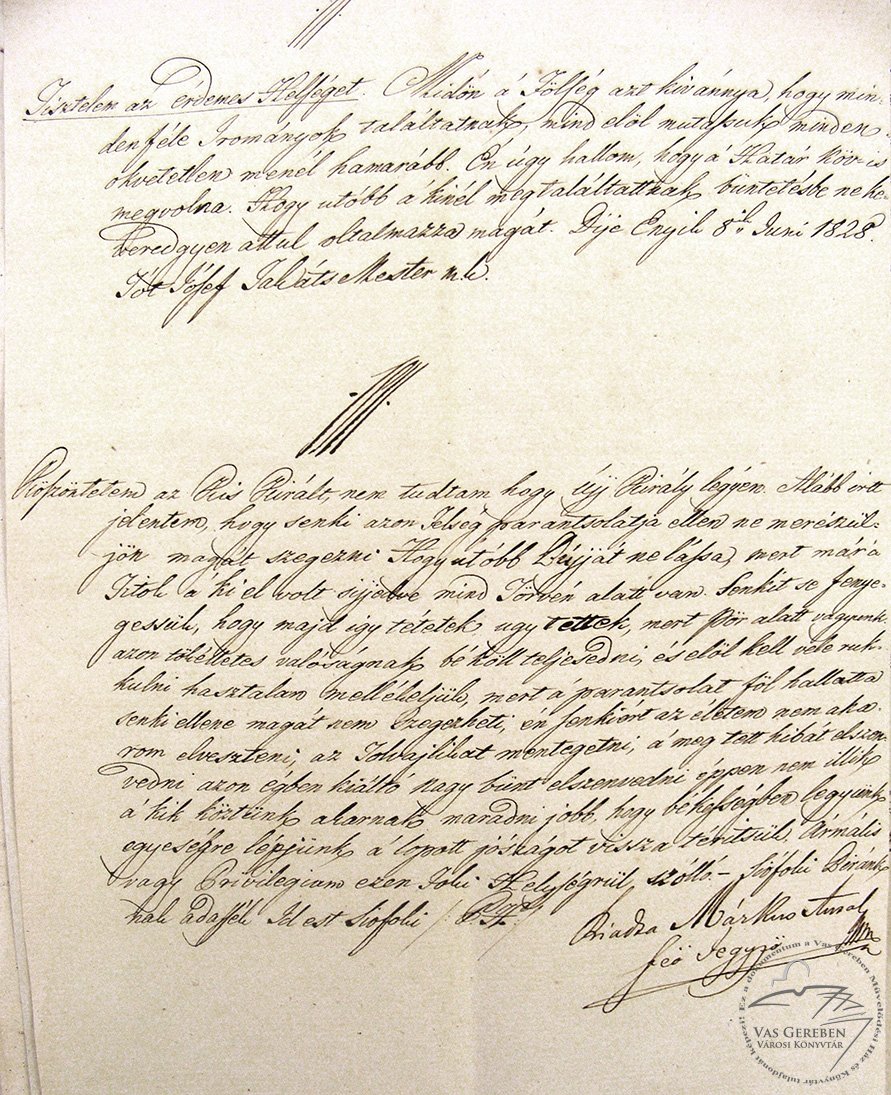 Tisztelem az érdemes Helséget. Midőn á Fölség azt kivánnya, hogy min-
denféle Irományok találtatnak, mind elöl mutassuk minden
okvetetlen menél hamarább. Én úgy hallom, hogy á Határ köv is
megvolna. Hogy utóbb á kinél megtaláltattnak büntetésbe ne ke-
veredgyen attul oltalmazza magát. Dije Enyih 8ik Juni 1828.
Tót Jósef Takáts Mester mk.
Köszöntelem az Kis Királt, nem tudtam hogy újj Király légyen. Alább irtt
jelentem, hogy senki azon Felség parantsolatja ellen ne merészül-
jön magát szegezni Hogy utóbb Bújját ne lássa, mert már a
Titok á ki el volt sijedve mind Törvén alatt van. Senkit se fenye-
gessük, hogy majd igy tétetek ugy tettek, mert Pör alatt vagyunk
azon tökélletes valóságnak bé köll teljesedni, és elöl kell vele ruk-
kulni hasztalan melléleljük, mert á parantsolat föl hallatta
senki ellene magát nem szegezheti, én senkiért az életem nem aka-
rom elveszteni, az Tolvajlikat mentegetni, á meg tett hibát elszen-
vedni azon égben kiáltó nagy bünt elszenvedni éppen nem illik
á kik köztünk akarnak maradni jobb, hogy békességben legyünk
egyeségre lépjünk a lopott jószágot vissza téritsük. Armális
vagy Privilegium ezen Foki Helységrül szólló. – Siófoki Biránk-
nak adassék Id est Siofoki /: P. H. :/
Kiadta Márkus Antal
feö Jegyző
Ez a dokumentum a Vas Gereben Művelődési Ház és Könyvtár tulajdonát képezi!
VAS GEREBEN
VÁROSI KÖNYVTÁR